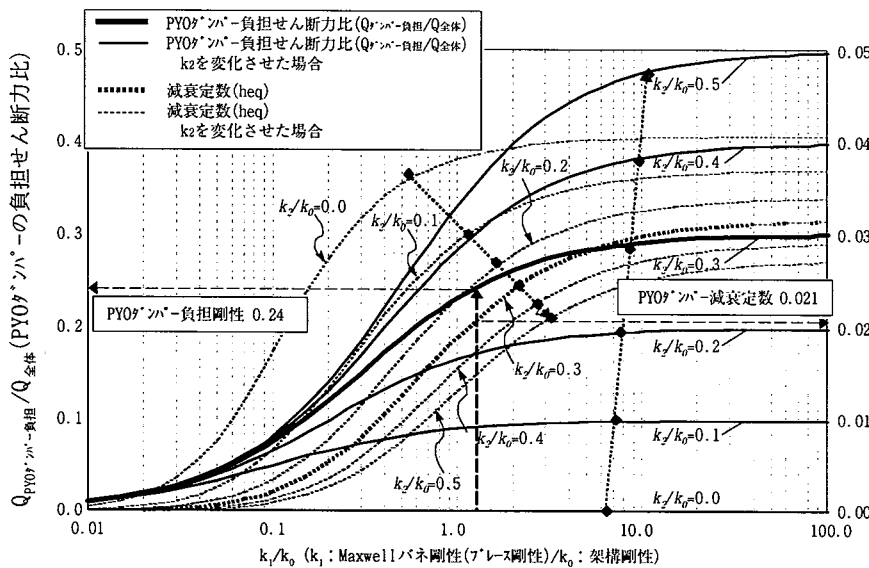 PYOダンパー負担せん断力比(Qダンパー負担/Q全体)
PYOダンパー負担せん断力比(Qダンパー負担/Q全体)
k2を変化させた場合
減衰定数(heq)
減衰定数(heq)
k2を変化させた場合
QPYOダンパー負担/Q全体(PYOダンパーの負担せん断力比)
0.5
0.4
0.3
0.2
0.1
0.0
0.05
0.04
0.03
0.02
0.01
0.00
k2/k0=0.5
k2/k0=0.4
k2/k0=0.3
k2/k0=0.2
k2/k0=0.1
k2/k0=0.0
k2/k0=0.0
k2/k0=0.1
k2/k0=0.2
k2/k0=0.3
k2/k0=0.4
k2/k0=0.5
PYOダンパー負担剛性 0.24
PYOダンパー減衰定数 0.021
0.01
0.1
1.0
10.0
100.0
k1/k0 (k1:Maxwellバネ剛性(ブレース剛性)/k0:架構剛性)